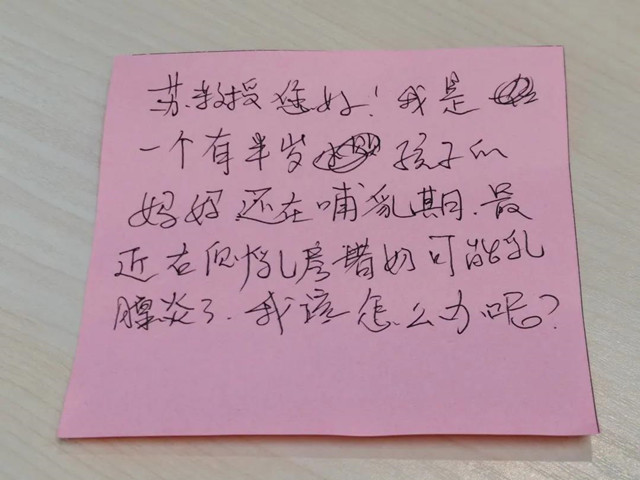 苏教授您好！我是
一个有半岁孩子的
妈妈还在哺乳期.最
近右侧乳房堵奶可能乳
腺炎了.我该怎么办呢？